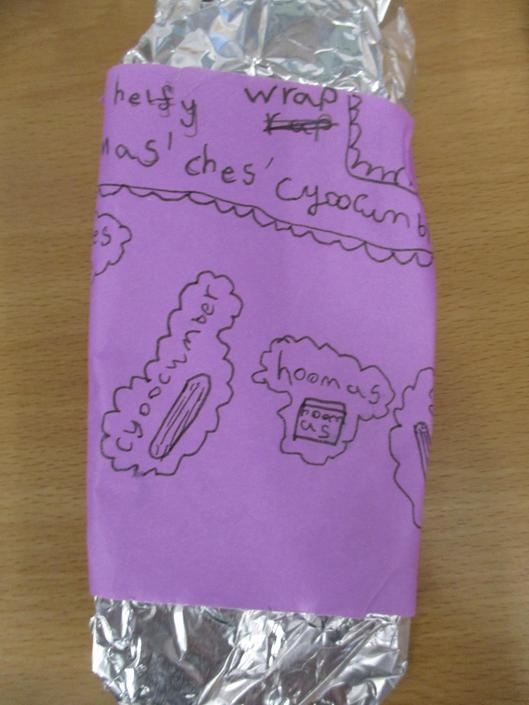 helfy wrap
mas' ches' cyoocumb
es
cyoocumber
hoomas
hoom
as